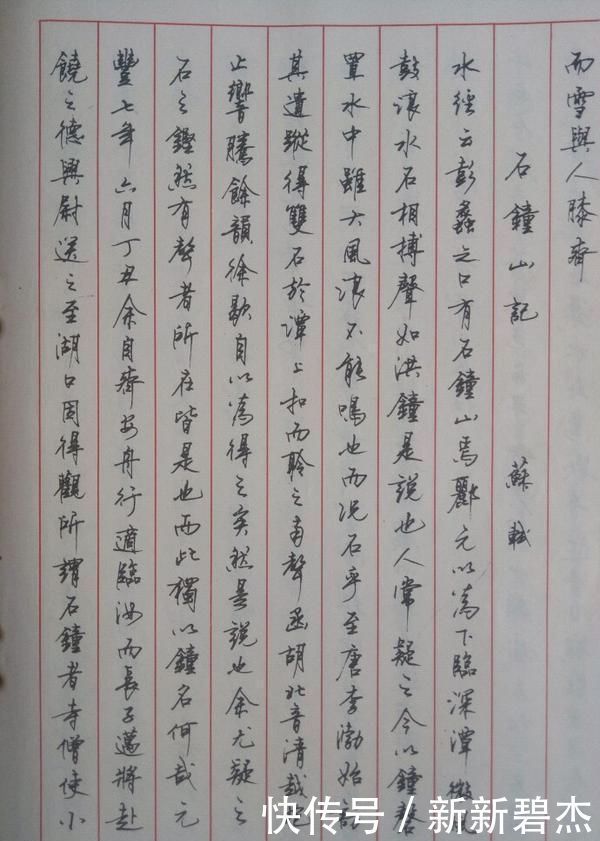 而雪與人膝齊
石鐘山記 蘇軾
水經云彭蠡之口有石鐘山焉酈元以為下臨深潭微風
鼓浪水石相搏聲如洪鐘是說也人常疑之今以鐘磬
置水中雖大風浪不能鳴也而況石乎至唐李渤始訪
其遺蹤得雙石於潭上扣而聆之南聲函胡北音清越
止響騰餘韻徐歇自以為得之矣然是說也余尤疑之
石之鏗然有聲者所在皆是也而此獨以鐘名何哉元
豐七年六月丁丑余自齊安舟行適臨汝而長子邁將赴
饒之德興尉送之至湖口因得觀所謂石鐘者寺僧使小
快传号/新新碧杰